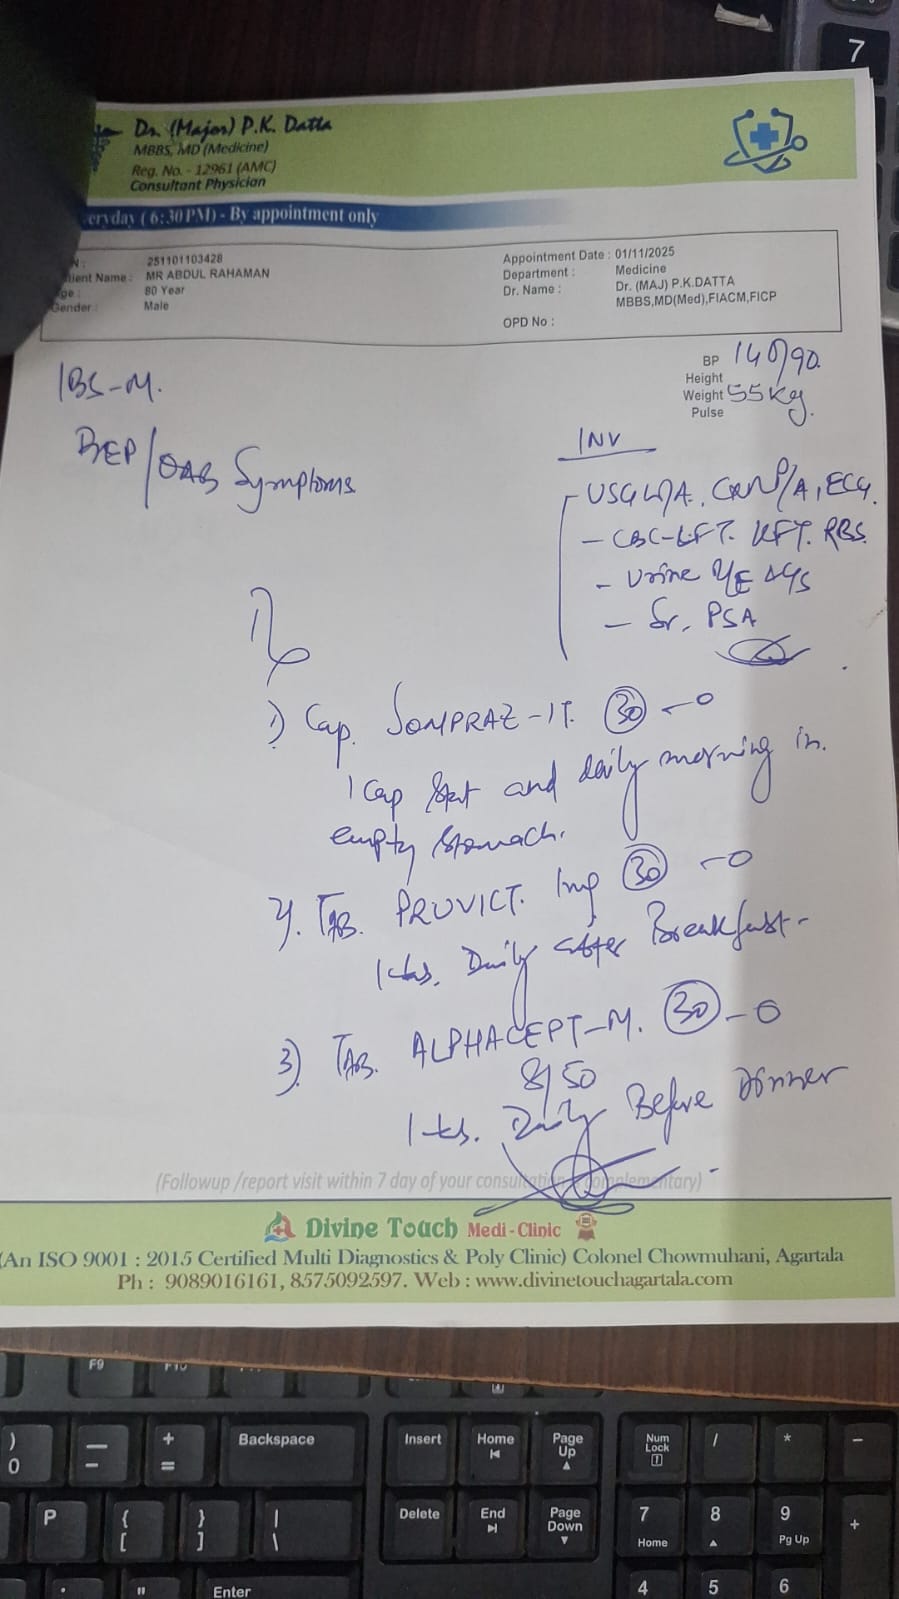 Dr. (Major) P.K. Datta
MBBS, MD (Medicine)
Reg. No. - 12961 (AMC)
Consultant Physician
eryday ( 6:30 PM) - By appointment only
N : 251101103428
tient Name : MR ABDUL RAHAMAN
ge : 80 Year
Gender : Male
Appointment Date : 01/11/2025
Department : Medicine
Dr. Name : Dr. (MAJ) P.K.DATTA
MBBS,MD(Med),FIACM,FICP
OPD No :
BP 140/90
Height
Weight 55Kg.
Pulse
IBS-M.
BEP/OAB Symptoms
INV
USG W/A. , ECG.
- CBC-LFT. KFT. RBS.
- Urine R/E
- Sr. PSA
1) Cap. SOMPRAZ-IT. 30
1 Cap Stat and daily morning in
empty stomach.
2). TAB. PRUVICT. 1mg 30
1 tab. Daily after Breakfast-
3) TAB. ALPHACEPT-M. 30
8/50
1 tab. Daily Before Dinner
(Followup /report visit within 7 day of your consultation is complementary)
Divine Touch Medi-Clinic
(An ISO 9001 : 2015 Certified Multi Diagnostics & Poly Clinic) Colonel Chowmuhani, Agartala
Ph : 9089016161, 8575092597. Web : www.divinetouchagartala.com
7
F9 F10
) 0 — - + = Backspace Insert Home Page Up Num Lock / * -
P { [ } ] | \ Delete End Page Down 7 Home 8 9 Pg Up +
" Enter 4 5 6